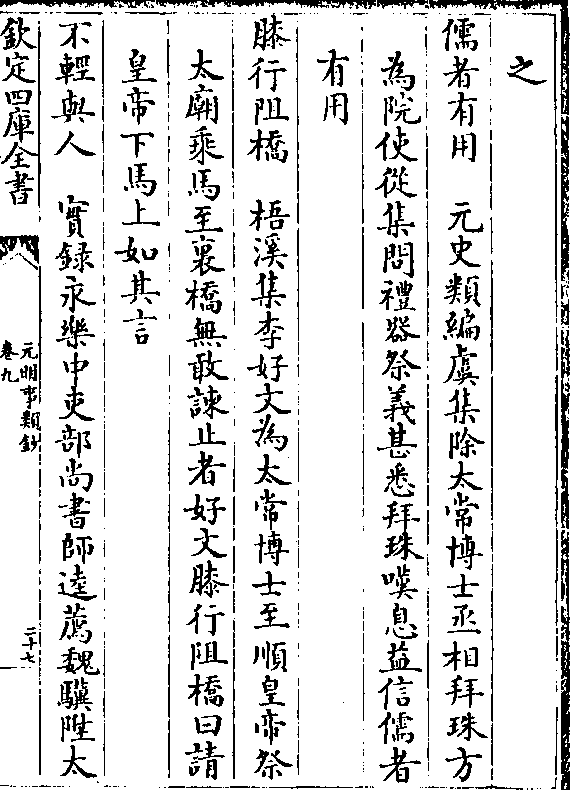 之
儒者有用　元史類編虞集除太常博士丞相拜珠方
為院使從集問禮器祭義甚悉拜珠嘆息益信儒者
有用
膝行阻橋　梧溪集李好文為太常博士至順皇帝祭
太廟乘馬至裏橋無敢諫止者好文膝行阻橋曰請
皇帝下馬上如其言
不輕與人　實録永樂中吏部尚書師逵薦魏驥陞太
欽定四庫全書
元明事類鈔
卷九
二十七